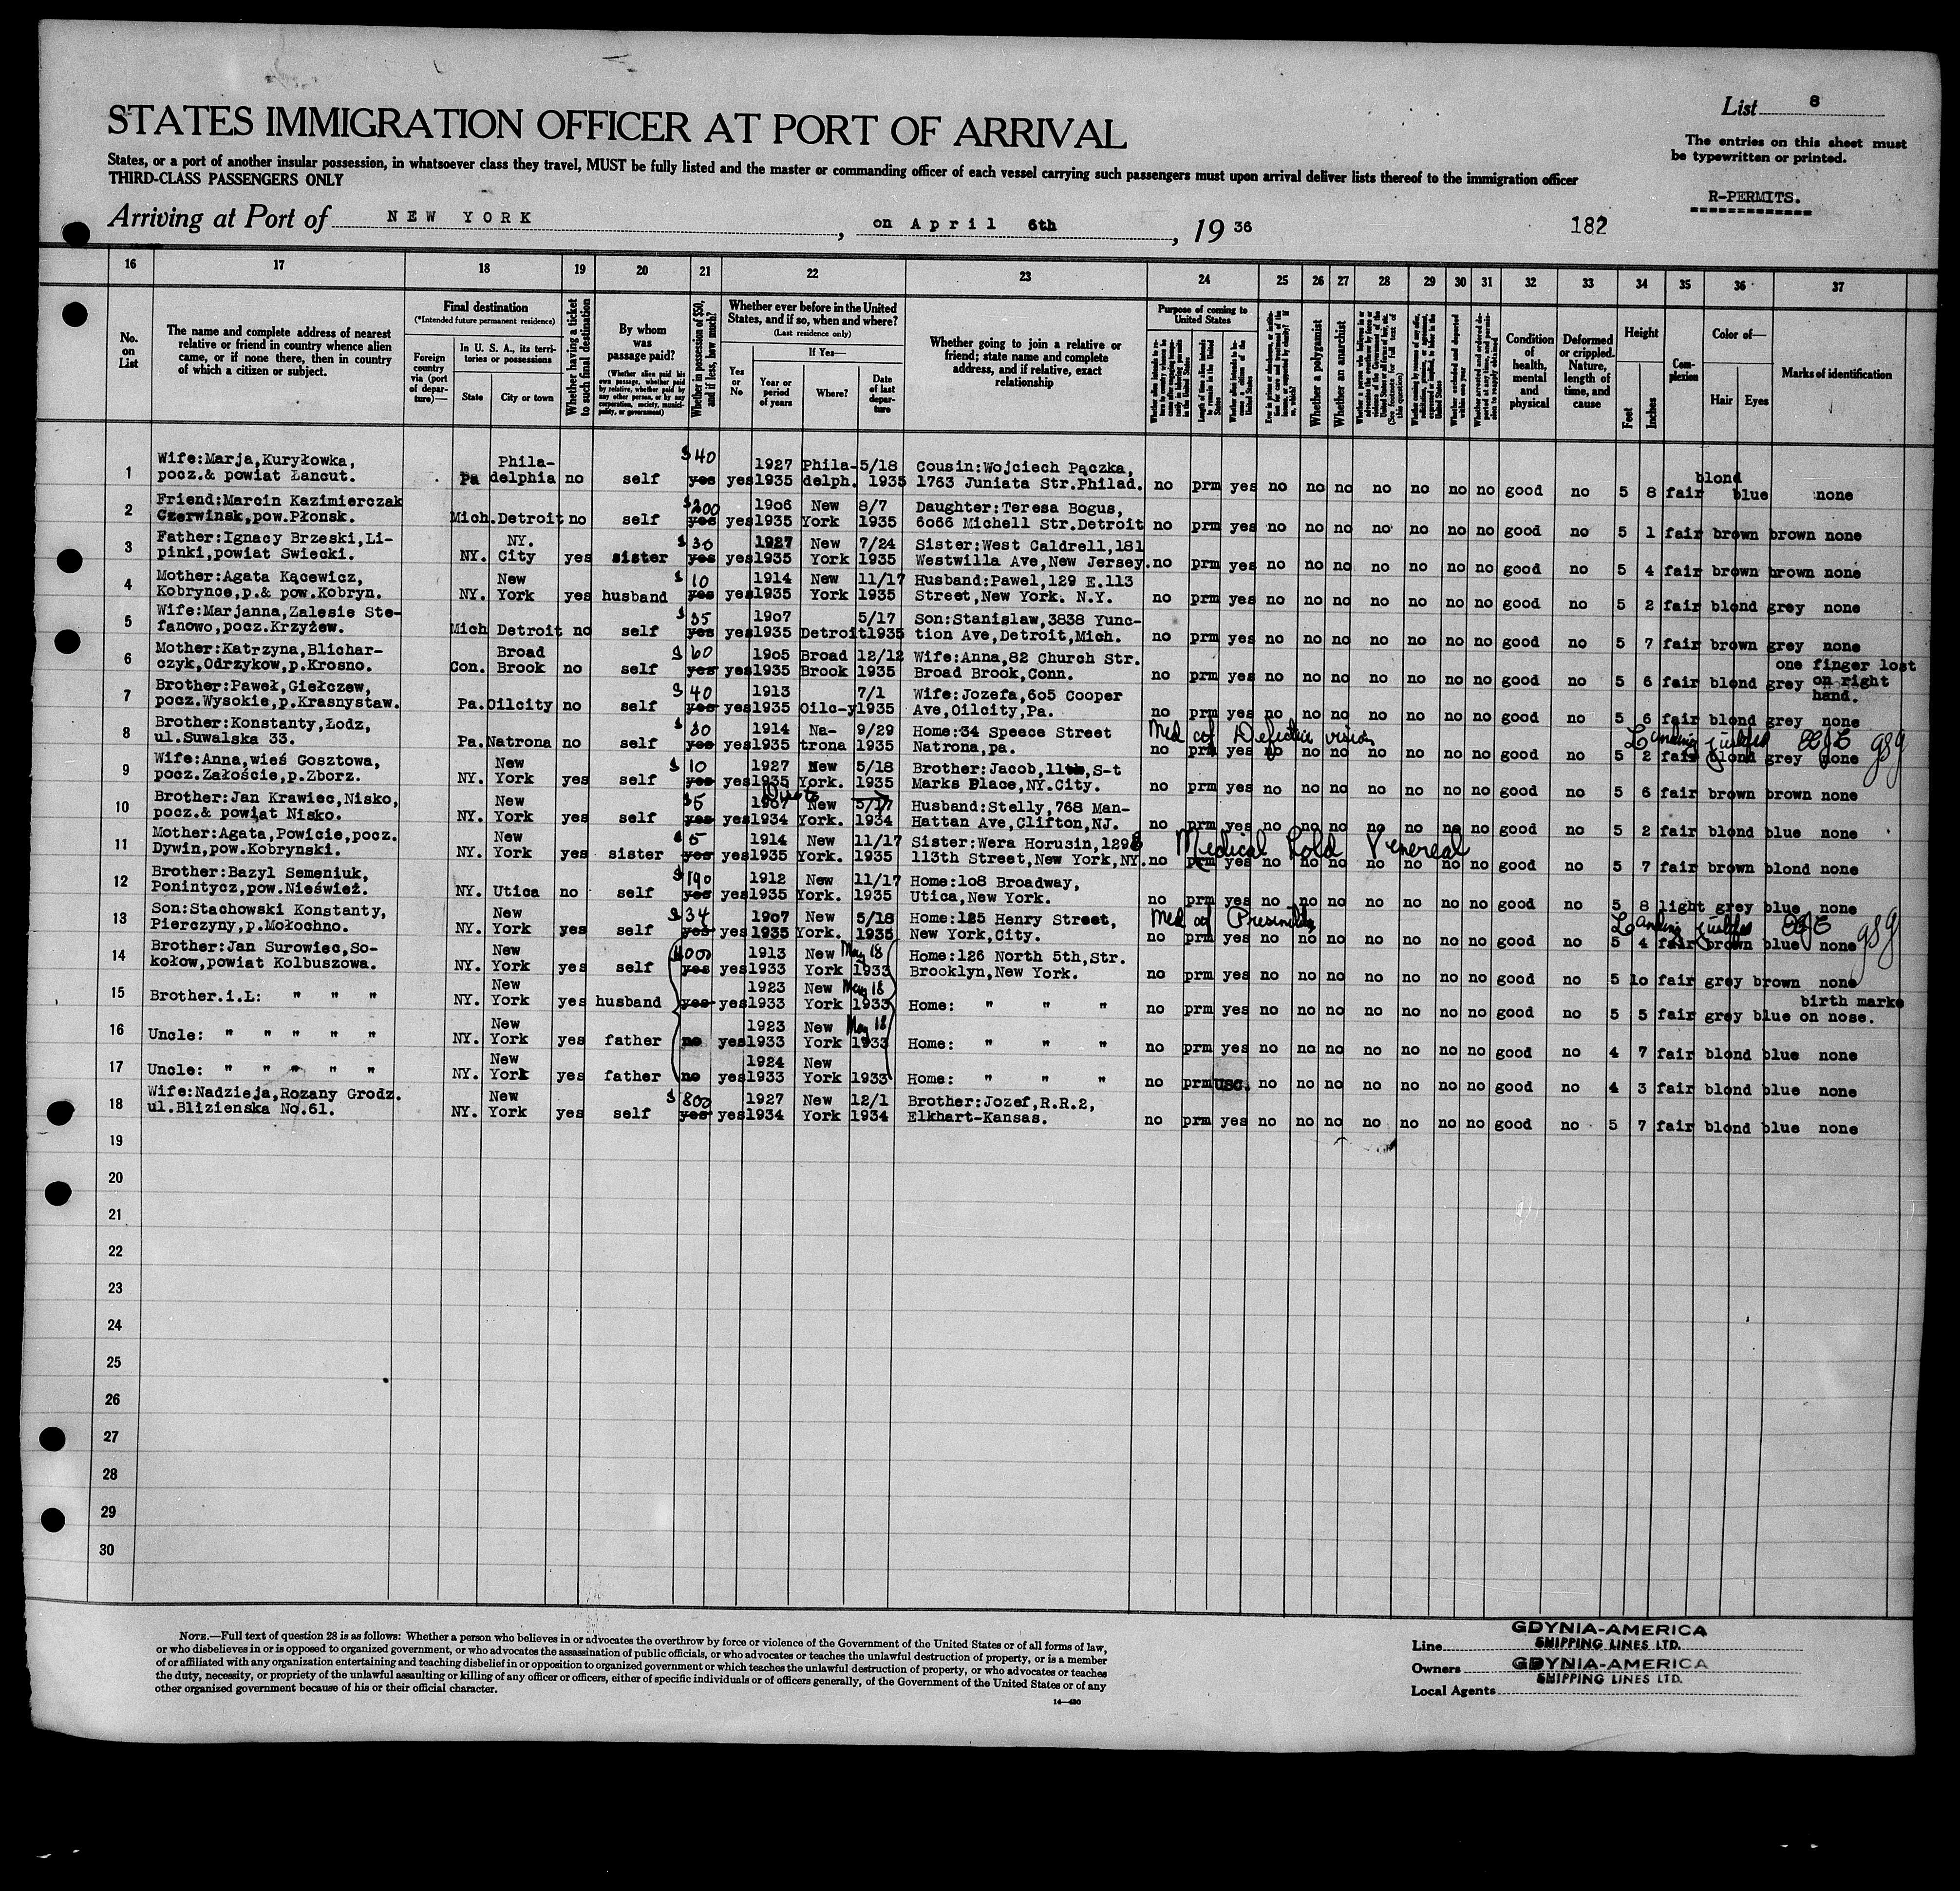 List 8
STATES IMMIGRATION OFFICER AT PORT OF ARRIVAL
The entries on this sheet must
be typewritten or printed.
States, or a port of another insular possession, in whatsoever class they travel, MUST be fully listed and the master or commanding officer of each vessel carrying such passengers must upon arrival deliver lists thereof to the immigration officer
THIRD-CLASS PASSENGERS ONLY
R-PERMITS.
Arriving at Port of NEW YORK, on April 6th, 1936
182
16 17 18 19 20 21 22 23 24 25 26 27 28 29 30 31 32 33 34 35 36 37
No. on List
The name and complete address of nearest relative or friend in country whence alien came, or if none there, then in country of which a citizen or subject.
Final destination
(*Intended future permanent residence)
Foreign country via (port of departure)—
In U. S. A., its territories or possessions
State
City or town
Whether having a ticket to such final destination
By whom was passage paid?
(Whether alien paid his own passage, whether paid by relative, whether paid by any other person, or by any corporation, society, municipality, or government)
Whether in possession of $50, and if less, how much?
Whether ever before in the United States, and if so, when and where?
(Last residence only)
Yes or No
If Yes—
Year or period of years
Where?
Date of last departure
Whether going to join a relative or friend; state name and complete address, and if relative, exact relationship
Purpose of coming to United States
Length of time alien intends to remain in the United States
Whether alien intends to become a citizen of the United States
Whether a polygamist
Whether an anarchist
(See footnote for full text of this question)
Condition of health, mental and physical
Deformed or crippled. Nature, length of time, and cause
Height
Feet
Inches
Complexion
Color of—
Hair
Eyes
Marks of identification
1 Wife:Marja,Kuryłowka, Phila- $40 1927 Phila- 5/18 Cousin:Wojciech Pączka, blond
pocz.& powiat Łancut. Pa delphia no self yes yes 1935 delph. 1935 1763 Juniata Str.Philad. no prm yes no no no no no no no good no 5 8 fair blue none
2 Friend:Marcin Kazimierczak $200 1906 New 8/7 Daughter:Teresa Bogus,
Czerwinsk,pow.Płonsk. Mich. Detroit no self yes yes 1935 York 1935 6066 Michell Str.Detroit no prm yes no no no no no no no good no 5 1 fair brown brown none
3 Father:Ignacy Brzeski,Li- NY. $30 1927 New 7/24 Sister:West Caldrell,181
pinki,powiat Swiecki. NY. City yes sister yes yes 1935 York 1935 Westwilla Ave,New Jersey. no prm yes no no no no no no no good no 5 4 fair brown brown none
4 Mother:Agata Kącewicz, New $10 1914 New 11/17 Husband:Pawel,129 E.113
Kobrynce,p.& pow.Kobryn. NY. York yes husband yes yes 1935 York 1935 Street,New York. N.Y. no prm yes no no no no no no no good no 5 2 fair blond grey none
5 Wife:Marjanna,Zalesie Ste- $35 1907 5/17 Son:Stanislaw,3838 Yunc-
fanowo,pocz.Krzyżew. Mich Detroit no self yes yes 1935 Detroit 1935 tion Ave,Detroit,Mich. no prm yes no no no no no no no good no 5 7 fair brown grey none
6 Mother:Katrzyna,Blichar- Broad $60 1905 Broad 12/12 Wife:Anna,82 Church Str. one finger lost
czyk,Odrzykow,p.Krosno. Con. Brook no self yes yes 1935 Brook 1935 Broad Brook,Conn. no prm yes no no no no no no no good no 5 6 fair blond grey on right
hand.
7 Brother:Paweł,Giełczew, $40 1913 7/1 Wife:Jozefa,605 Cooper
pocz.Wysokie,p.Krasnystaw. Pa. Oilcity no self yes yes 1935 Oilc-y 1935 Ave,Oilcity,Pa. no prm yes no no no no no no no good no 5 6 fair blond grey none
8 Brother:Konstanty,Łodz, $30 1914 Na- 9/29 Home:34 Speece Street Med cf Defective vision Landing justified
ul.Suwalska 33. Pa. Natrona no self yes yes 1935 trona 1935 Natrona,pa. no prm yes no no no no no no no good no 5 2 fair blond grey none
9 Wife:Anna,wieś Gosztowa, New $10 1927 New 5/18 Brother:Jacob,11th,S-t
pocz.Założcie,p.Zborz. NY. York yes self yes yes 1935 York. 1935 Marks Place,NY.City. no prm yes no no no no no no no good no 5 6 fair brown brown none
10 Brother:Jan Krawiec,Nisko, New $5 1907 New 5/17 Husband:Stelly,768 Man-
pocz.& powiat Nisko. NY. York yes self yes yes 1934 York. 1934 Hattan Ave,Clifton,NJ. no prm yes no no no no no no no good no 5 2 fair blond blue none
11 Mother:Agata,Powicie,pocz. New $5 1914 New 11/17 Sister:Wera Horusin,129E Medical Hold Venereal
Dywin,pow.Kobrynski. NY. York yes sister yes yes 1935 York. 1935 113th Street,New York,NY. no prm yes no no no no no no no good no 5 7 fair brown blond none
12 Brother:Bazyl Semeniuk, $190 1912 New 11/17 Home:108 Broadway,
Ponintycz,pow.Nieśwież. NY. Utica no self yes yes 1935 York. 1935 Utica,New York. no prm yes no no no no no no no good no 5 8 light grey blue none
13 Son:Stachowski Konstanty, New $34 1907 New 5/18 Home:125 Henry Street, Med cf Presenility Landing justified
Pierczyny,p.Mołochno. NY. York yes self yes yes 1935 York. 1935 New York,City. no prm yes no no no no no no no good no 5 4 fair brown blue none
14 Brother:Jan Surowiec,So- New 1913 New May 18 Home:126 North 5th,Str.
kołow,powiat Kolbuszowa. NY. York yes self yes yes 1933 York 1933 Brooklyn,New York. no prm yes no no no no no no no good no 5 10 fair grey brown none
15 Brother.i.L: " " " New 1923 New May 18 birth marke
NY. York yes husband yes yes 1933 York 1933 Home: " " " no prm yes no no no no no no no good no 5 5 fair grey blue on nose.
16 Uncle: " " " " " New 1923 New May 18
NY. York yes father no yes 1933 York 1933 Home: " " " no prm yes no no no no no no no good no 4 7 fair blond blue none
17 Uncle: " " " " " New 1924 New
NY. York yes father no yes 1933 York 1933 Home: " " " no prm USC. no no no no no no no good no 4 3 fair blond blue none
18 Wife:Nadzieja,Rozany Grodz. New $800 1927 New 12/1 Brother:Jozef,R.R.2,
ul.Blizienska No.61. NY. York yes self yes yes 1934 York 1934 Elkhart-Kansas. no prm yes no no no no no no no good no 5 7 fair blond blue none
19
20
21
22
23
24
25
26
27
28
29
30
NOTE.—Full text of question 28 is as follows: Whether a person who believes in or advocates the overthrow by force or violence of the Government of the United States or of all forms of law,
or who disbelieves in or is opposed to organized government, or who advocates the assassination of public officials, or who advocates or teaches the unlawful destruction of property, or is a member
of or affiliated with any organization entertaining and teaching disbelief in or opposition to organized government or which teaches the unlawful destruction of property, or who advocates or teaches
the duty, necessity, or propriety of the unlawful assaulting or killing of any officer or officers, either of specific individuals or of officers generally, of the Government of the United States or of any
other organized government because of his or their official character.
14—430
Line GDYNIA-AMERICA SHIPPING LINES LTD.
Owners GDYNIA-AMERICA SHIPPING LINES LTD.
Local Agents